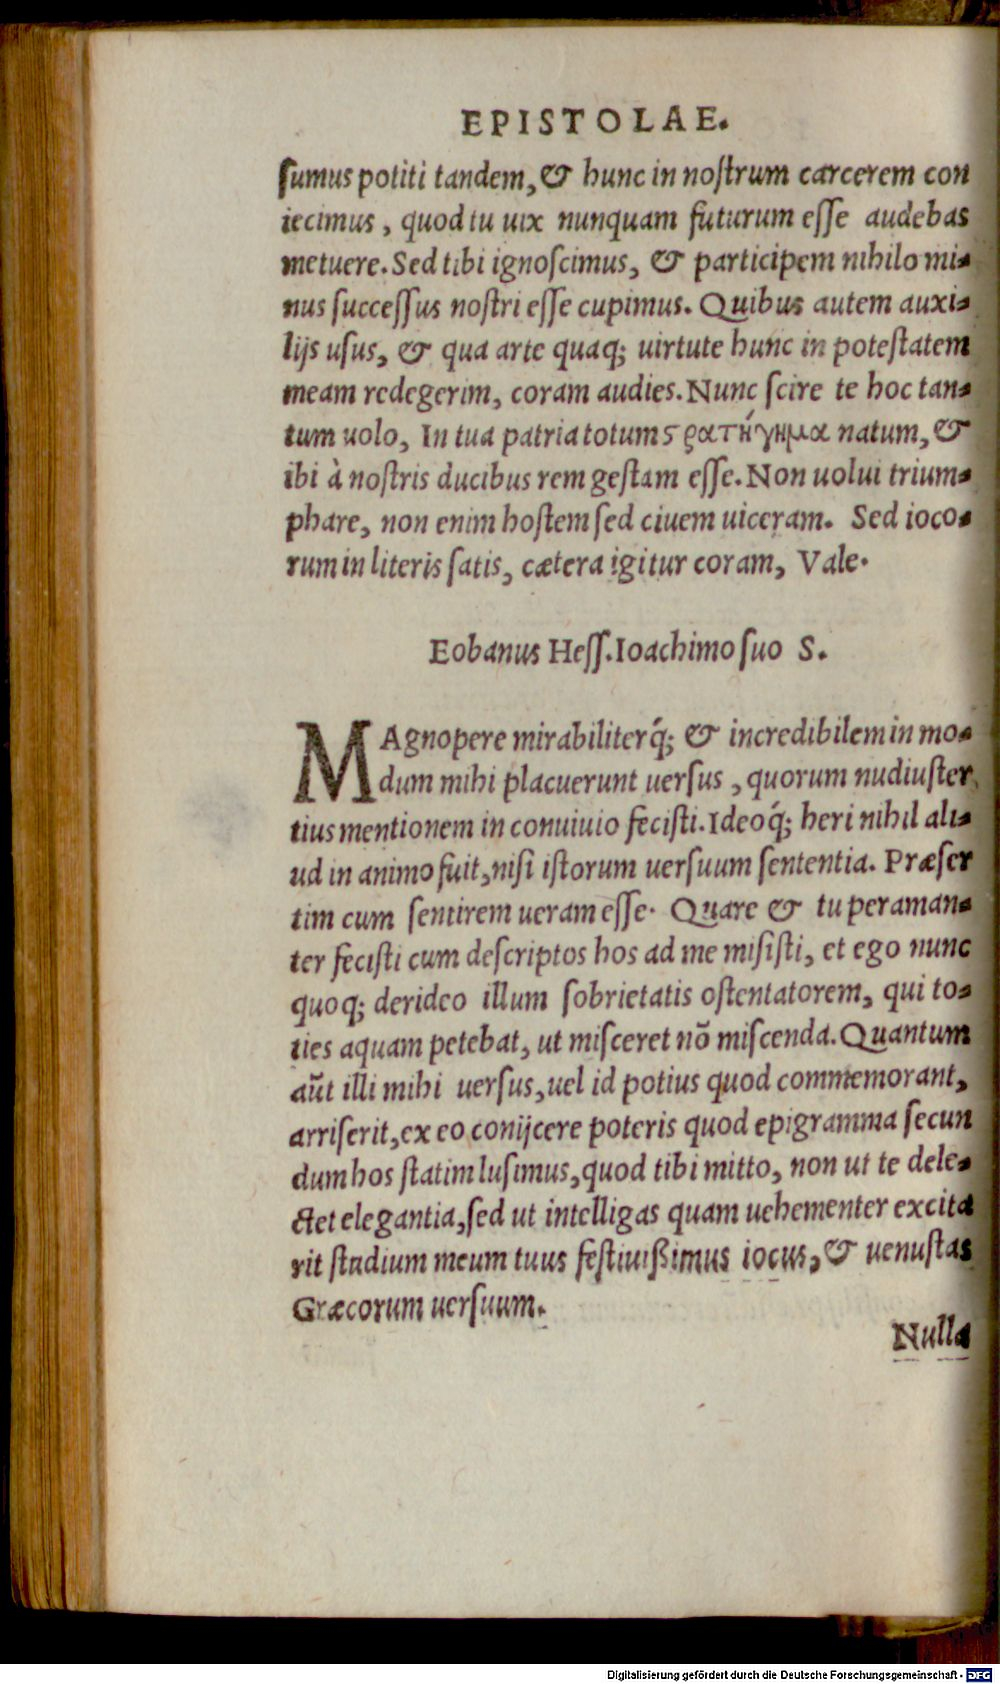 EPISTOLAE.
ſumus potiti tandem, & hunc in noſtrum carcerem con
iecimus, quod tu uix nunquam futurum eſſe audebas
metuere. Sed tibi ignoſcimus, & participem nihilo mi-
nus ſucceſſus noſtri eſſe cupimus. Quibus autem auxi-
lijs uſus, & qua arte quaq; uirtute hunc in poteſtatem
meam redegerim, coram audies. Nunc ſcire te hoc tan-
tum uolo, In tua patria totum ϛρατήγημα natum, &
ibi à noſtris ducibus rem geſtam eſſe. Non uolui trium-
phare, non enim hoſtem ſed ciuem uiceram. Sed ioco-
rum in literis ſatis, cætera igitur coram, Vale.
Eobanus Heſſ. Ioachimo ſuo S.
MAgnopere mirabiliterq́; & incredibilem in mo-
dum mihi placuerunt uerſus, quorum nudiuſter
tius mentionem in conuiuio feciſti. Ideoq́; heri nihil ali-
ud in animo fuit, niſi iſtorum uerſuum ſententia. Præſer
tim cum ſentirem ueram eſſe. Quare & tu peraman-
ter feciſti cum deſcriptos hos ad me miſiſti, et ego nunc
quoq; derideo illum ſobrietatis oſtentatorem, qui to-
ties aquam petebat, ut miſceret nõ miſcenda. Quantum
aũt illi mihi uerſus, uel id potius quod commemorant,
arriſerit, ex eo conijcere poteris quod epigramma ſecun
dum hos ſtatim luſimus, quod tibi mitto, non ut te dele-
ctet elegantia, ſed ut intelligas quam uehementer excita
rit ſtudium meum tuus feſtiuißimus iocus, & uenuſtas
Græcorum uerſuum.
Nulla
Digitalisierung gefördert durch die Deutsche Forschungsgemeinschaft - DFG